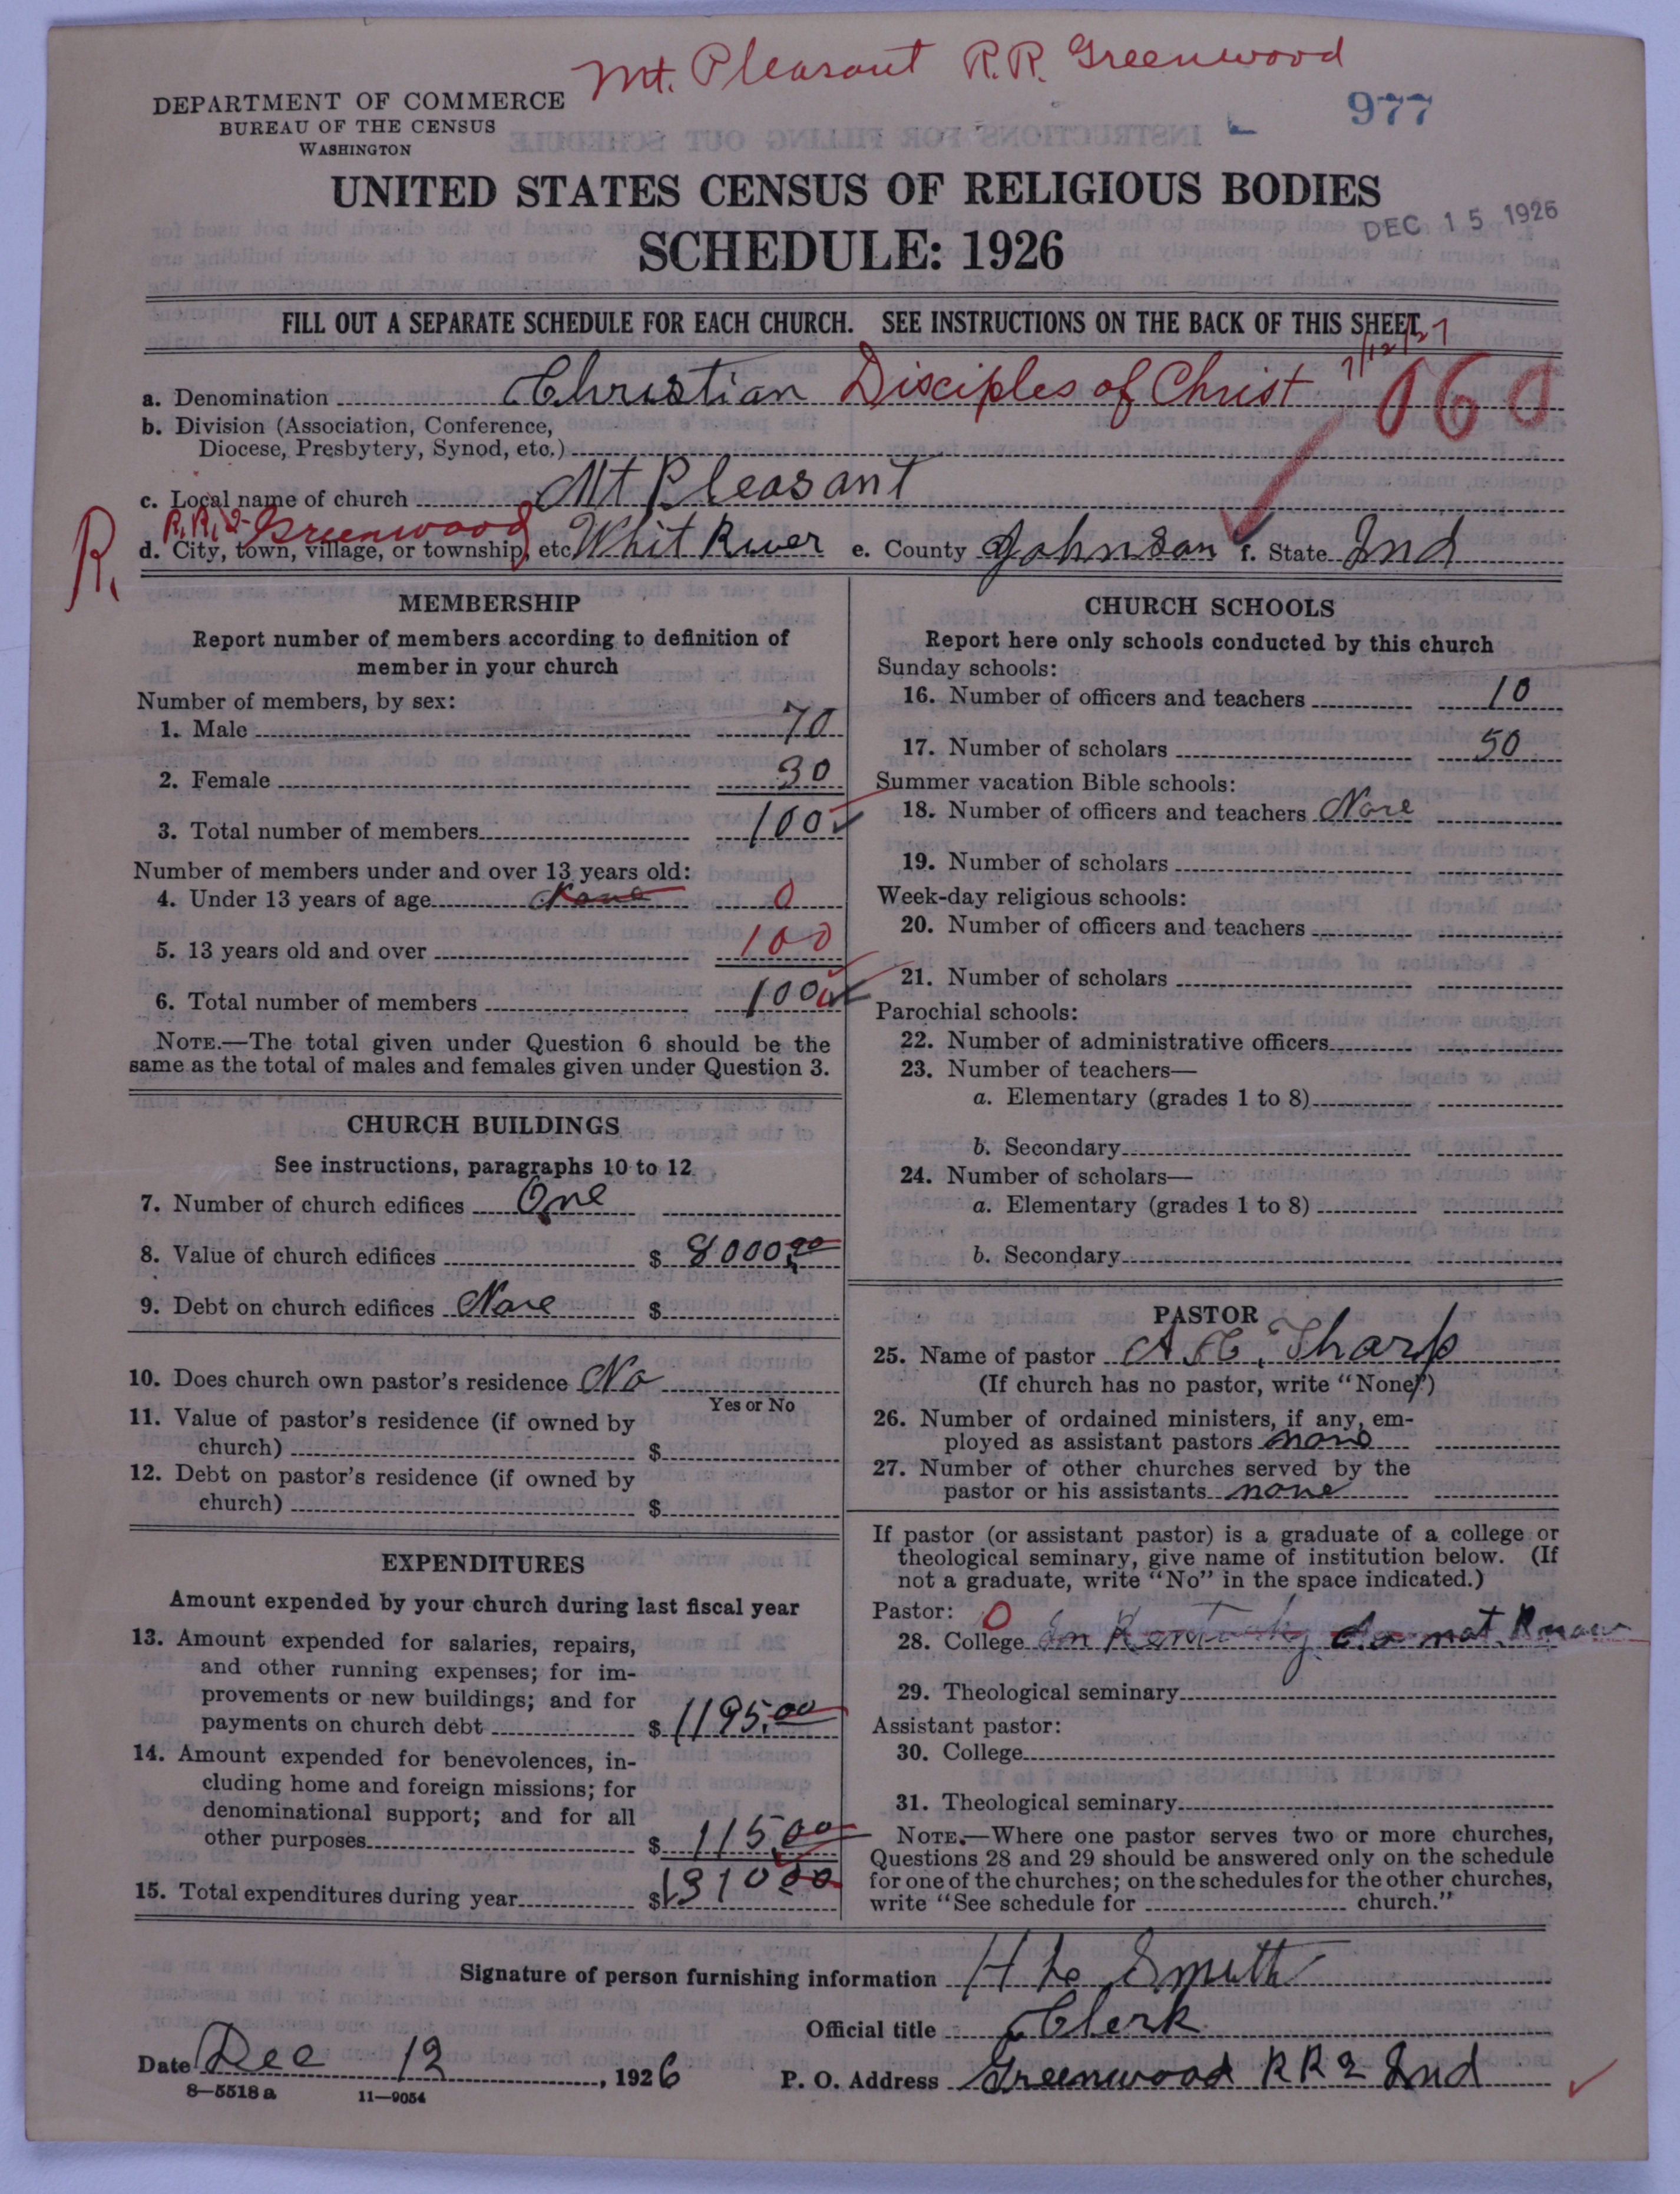 Mt. Pleasant R.R. Greenwood
DEPARTMENT OF COMMERCE
BUREAU OF THE CENSUS
WASHINGTON
977
UNITED STATES CENSUS OF RELIGIOUS BODIES
SCHEDULE: 1926
DEC 15 1926
FILL OUT A SEPARATE SCHEDULE FOR EACH CHURCH. SEE INSTRUCTIONS ON THE BACK OF THIS SHEET.
7/12/27
a. Denomination Christian Disciples of Christ 060
b. Division (Association, Conference,
Diocese, Presbytery, Synod, etc.)
c. Local name of church Mt Pleasant
R. R. R. 2- Greenwood
d. City, town, village, or township, etc. Whit River e. County Johnson f. State Ind
MEMBERSHIP
Report number of members according to definition of
member in your church
Number of members, by sex:
1. Male 70
2. Female 30
3. Total number of members 100
Number of members under and over 13 years old:
4. Under 13 years of age None 0
5. 13 years old and over 100
6. Total number of members 100
NOTE.—The total given under Question 6 should be the
same as the total of males and females given under Question 3.
CHURCH BUILDINGS
See instructions, paragraphs 10 to 12
7. Number of church edifices One
8. Value of church edifices $ 8000.00
9. Debt on church edifices None $
10. Does church own pastor's residence No
Yes or No
11. Value of pastor's residence (if owned by
church) $
12. Debt on pastor's residence (if owned by
church) $
EXPENDITURES
Amount expended by your church during last fiscal year
13. Amount expended for salaries, repairs,
and other running expenses; for im-
provements or new buildings; and for
payments on church debt $ 1195.00
14. Amount expended for benevolences, in-
cluding home and foreign missions; for
denominational support; and for all
other purposes $ 115.00
15. Total expenditures during year $1310.00
CHURCH SCHOOLS
Report here only schools conducted by this church
Sunday schools:
16. Number of officers and teachers 10
17. Number of scholars 50
Summer vacation Bible schools:
18. Number of officers and teachers None
19. Number of scholars
Week-day religious schools:
20. Number of officers and teachers
21. Number of scholars
Parochial schools:
22. Number of administrative officers
23. Number of teachers—
a. Elementary (grades 1 to 8)
b. Secondary
24. Number of scholars—
a. Elementary (grades 1 to 8)
b. Secondary
PASTOR
25. Name of pastor Tharp
(If church has no pastor, write "None")
26. Number of ordained ministers, if any, em-
ployed as assistant pastors none
27. Number of other churches served by the
pastor or his assistants none
If pastor (or assistant pastor) is a graduate of a college or
theological seminary, give name of institution below. (If
not a graduate, write "No" in the space indicated.)
Pastor: 0
28. College In Kentucky do not Know
29. Theological seminary
Assistant pastor:
30. College
31. Theological seminary
NOTE.—Where one pastor serves two or more churches,
Questions 28 and 29 should be answered only on the schedule
for one of the churches; on the schedules for the other churches,
write "See schedule for church."
Signature of person furnishing information Smith
Official title Clerk
Date Dec 12, 1926 P. O. Address Greenwood RR 2 Ind
8—5518 a 11—9054